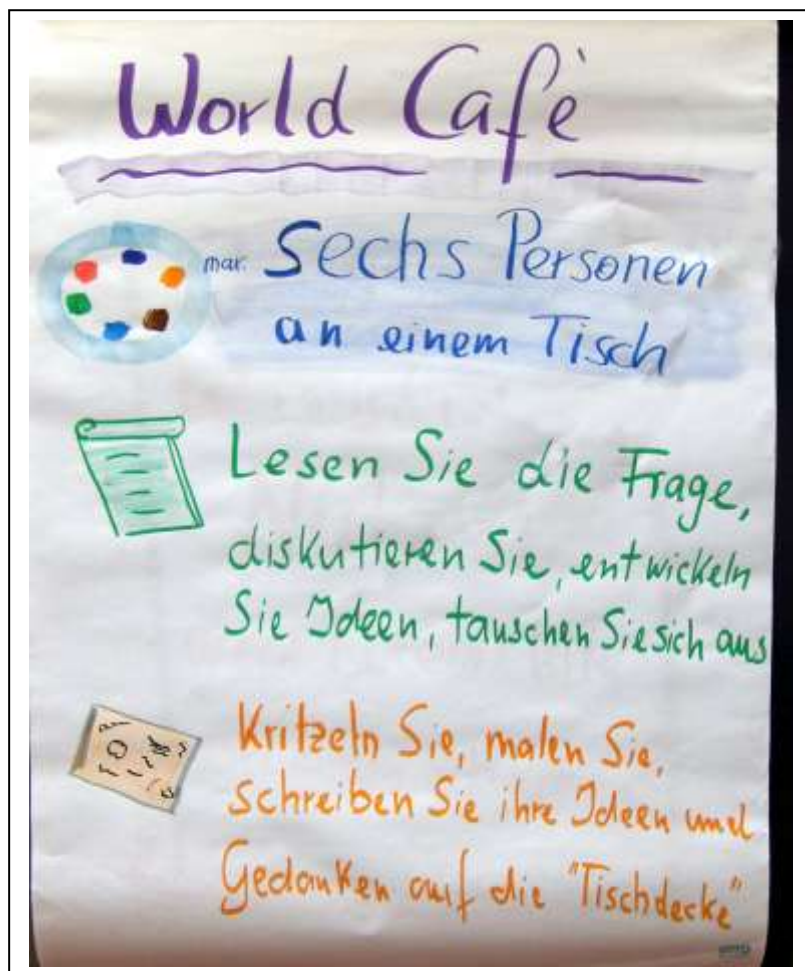 World Cafè
mar. Sechs Personen
an einem Tisch
Lesen Sie die Frage,
diskutieren Sie, entwickeln
Sie Ideen, tauschen Sie sich aus
Kritzeln Sie, malen Sie,
schreiben Sie ihre Ideen und
Gedanken auf die "Tischdecke"